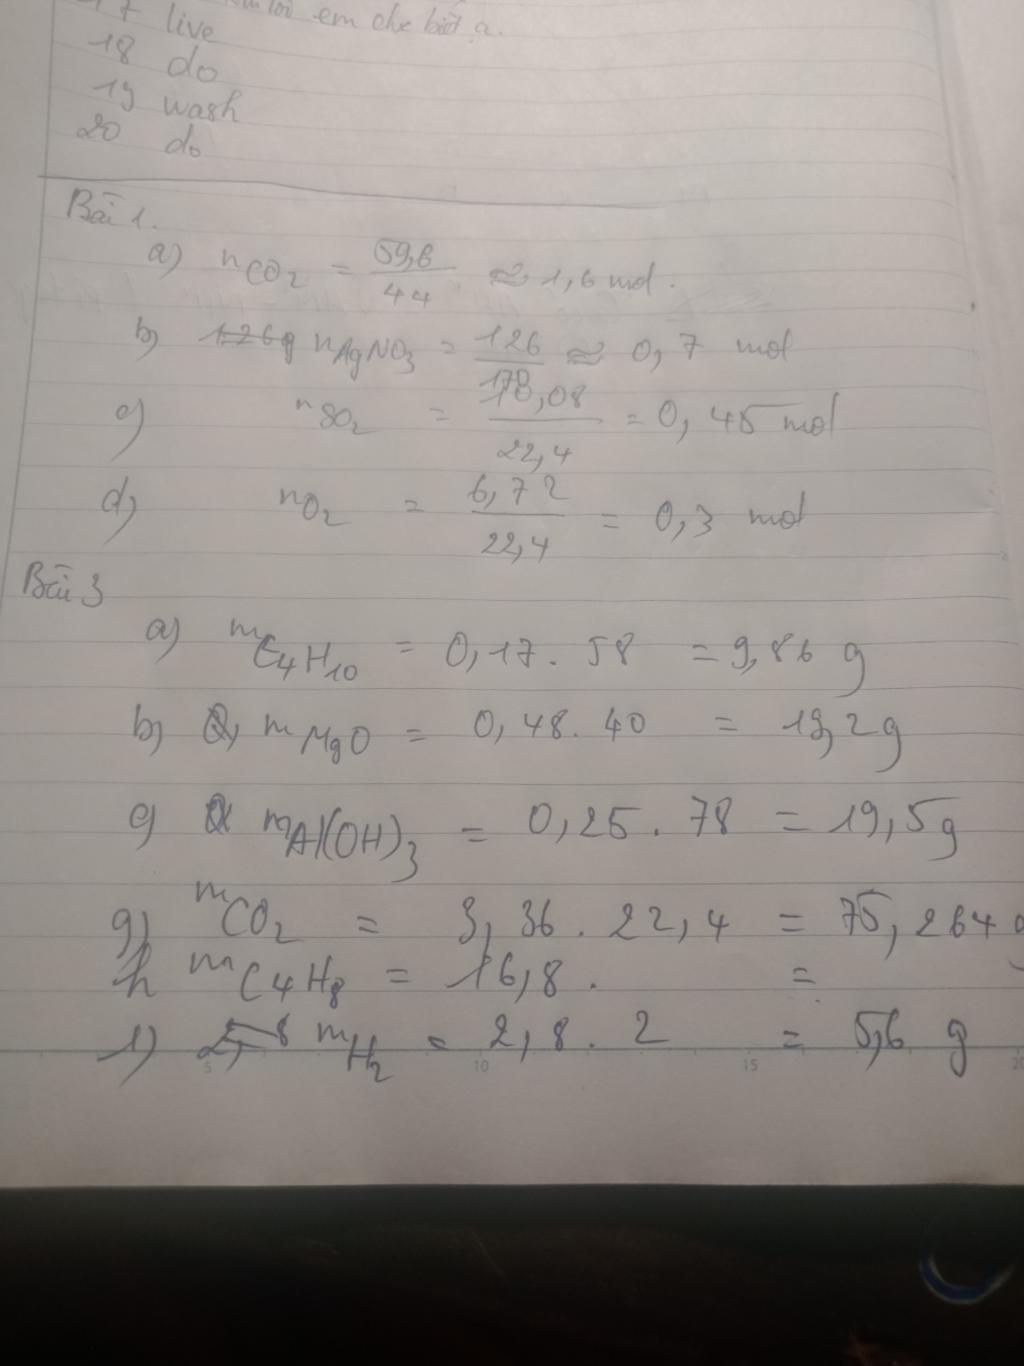 em che biết ạ.
17 live
18 do
19 wash
20 do
Bài 1.
a) nCO2 = 59,6/44 ≈ 1,6 mol.
b) nAgNO3 = 126/170 ≈ 0,7 mol
c) nSO2 = 10,08/22,4 = 0,45 mol
d) nO2 = 6,72/22,4 = 0,3 mol
Bài 3
a) mC4H10 = 0,17. 58 = 9,86 g
b) mMgO = 0,48. 40 = 19,2g
c) mAl(OH)3 = 0,25. 78 = 19,5g
g) mCO2 = 3,36. 22,4 = 75,264 g
h mC4H8 = 16,8. =
1) mH2 = 2,8. 2 = 5,6 g
5 10 15 20